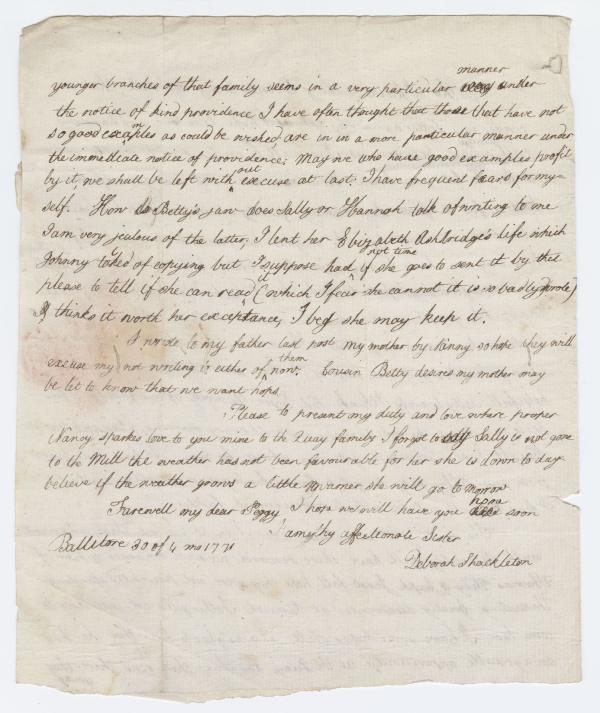 manner
younger branches of that family seems in a very particular under
the notice of kind providence I have often thought that those that have not
so good examples as could be wished are in in a more particular manner under
the immediate notice of providence; May we who have good examples profit
by it, we shall be left with out excuse at last; I have frequent fears for my-
self. How is Betty's jaw does Sally or Hannah talk of writing to me
I am very jealous of the latter, I lent her Elizabeth Ashbridge's life which
not time
Johnny talked of copying but I suppose had, if she goes to sent it by that
please to tell if she can read (which I fear she cannot it is so badly wrote)
& thinks it worth her exceptance, I beg she may keep it.
I wrote to my father last post my mother by Nanny so hope they will
them
excuse my not writing to either of now. Cousin Betty desires my mother may
be let to know that we want hops
Please to present my duty and love where proper
Nancy Sparkes love to you mine to the Quay family I forgot to say Sally is not gone
to the Mill the weather has not been favourable for her she is down to day
believe if the weather grows a little warmer she will go to morrow
Farewell my dear Peggy I hope we will have you here soon
I am thy affectionate Sister
Ballitore 30 of 4 mo 1771
Deborah Shackleton